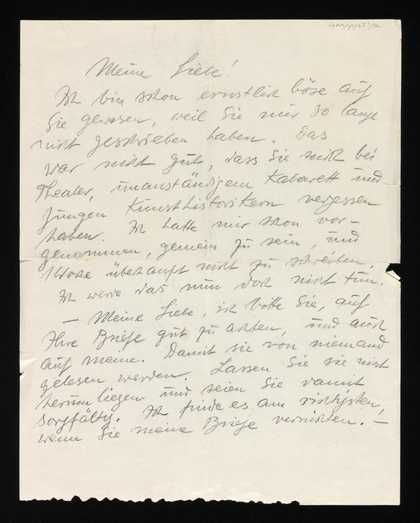 Meine Liebe!
Ich bin schon ernstlich böse auf
Sie gewesen, weil Sie mir so lange
nicht geschrieben haben. Das
war nicht gut, dass Sie mich bei
Theater, unanständigem Kabarett und
jungen Kunsthistorikern vergessen
haben. Ich hatte mir schon vor-
genommen, gemein zu sein, und
überhaupt nicht zu schreiben,
Ich werde das nun doch nicht tun.
— Meine Liebe, ich bitte Sie, auf
Ihre Briefe gut zu achten, und auch
auf meine. Damit sie von niemand
gelesen werden. Lassen Sie sie nicht
herumliegen und seien Sie damit
sorgfältig. Ich finde es am richtigsten,
wenn Sie meine Briefe vernichten. —